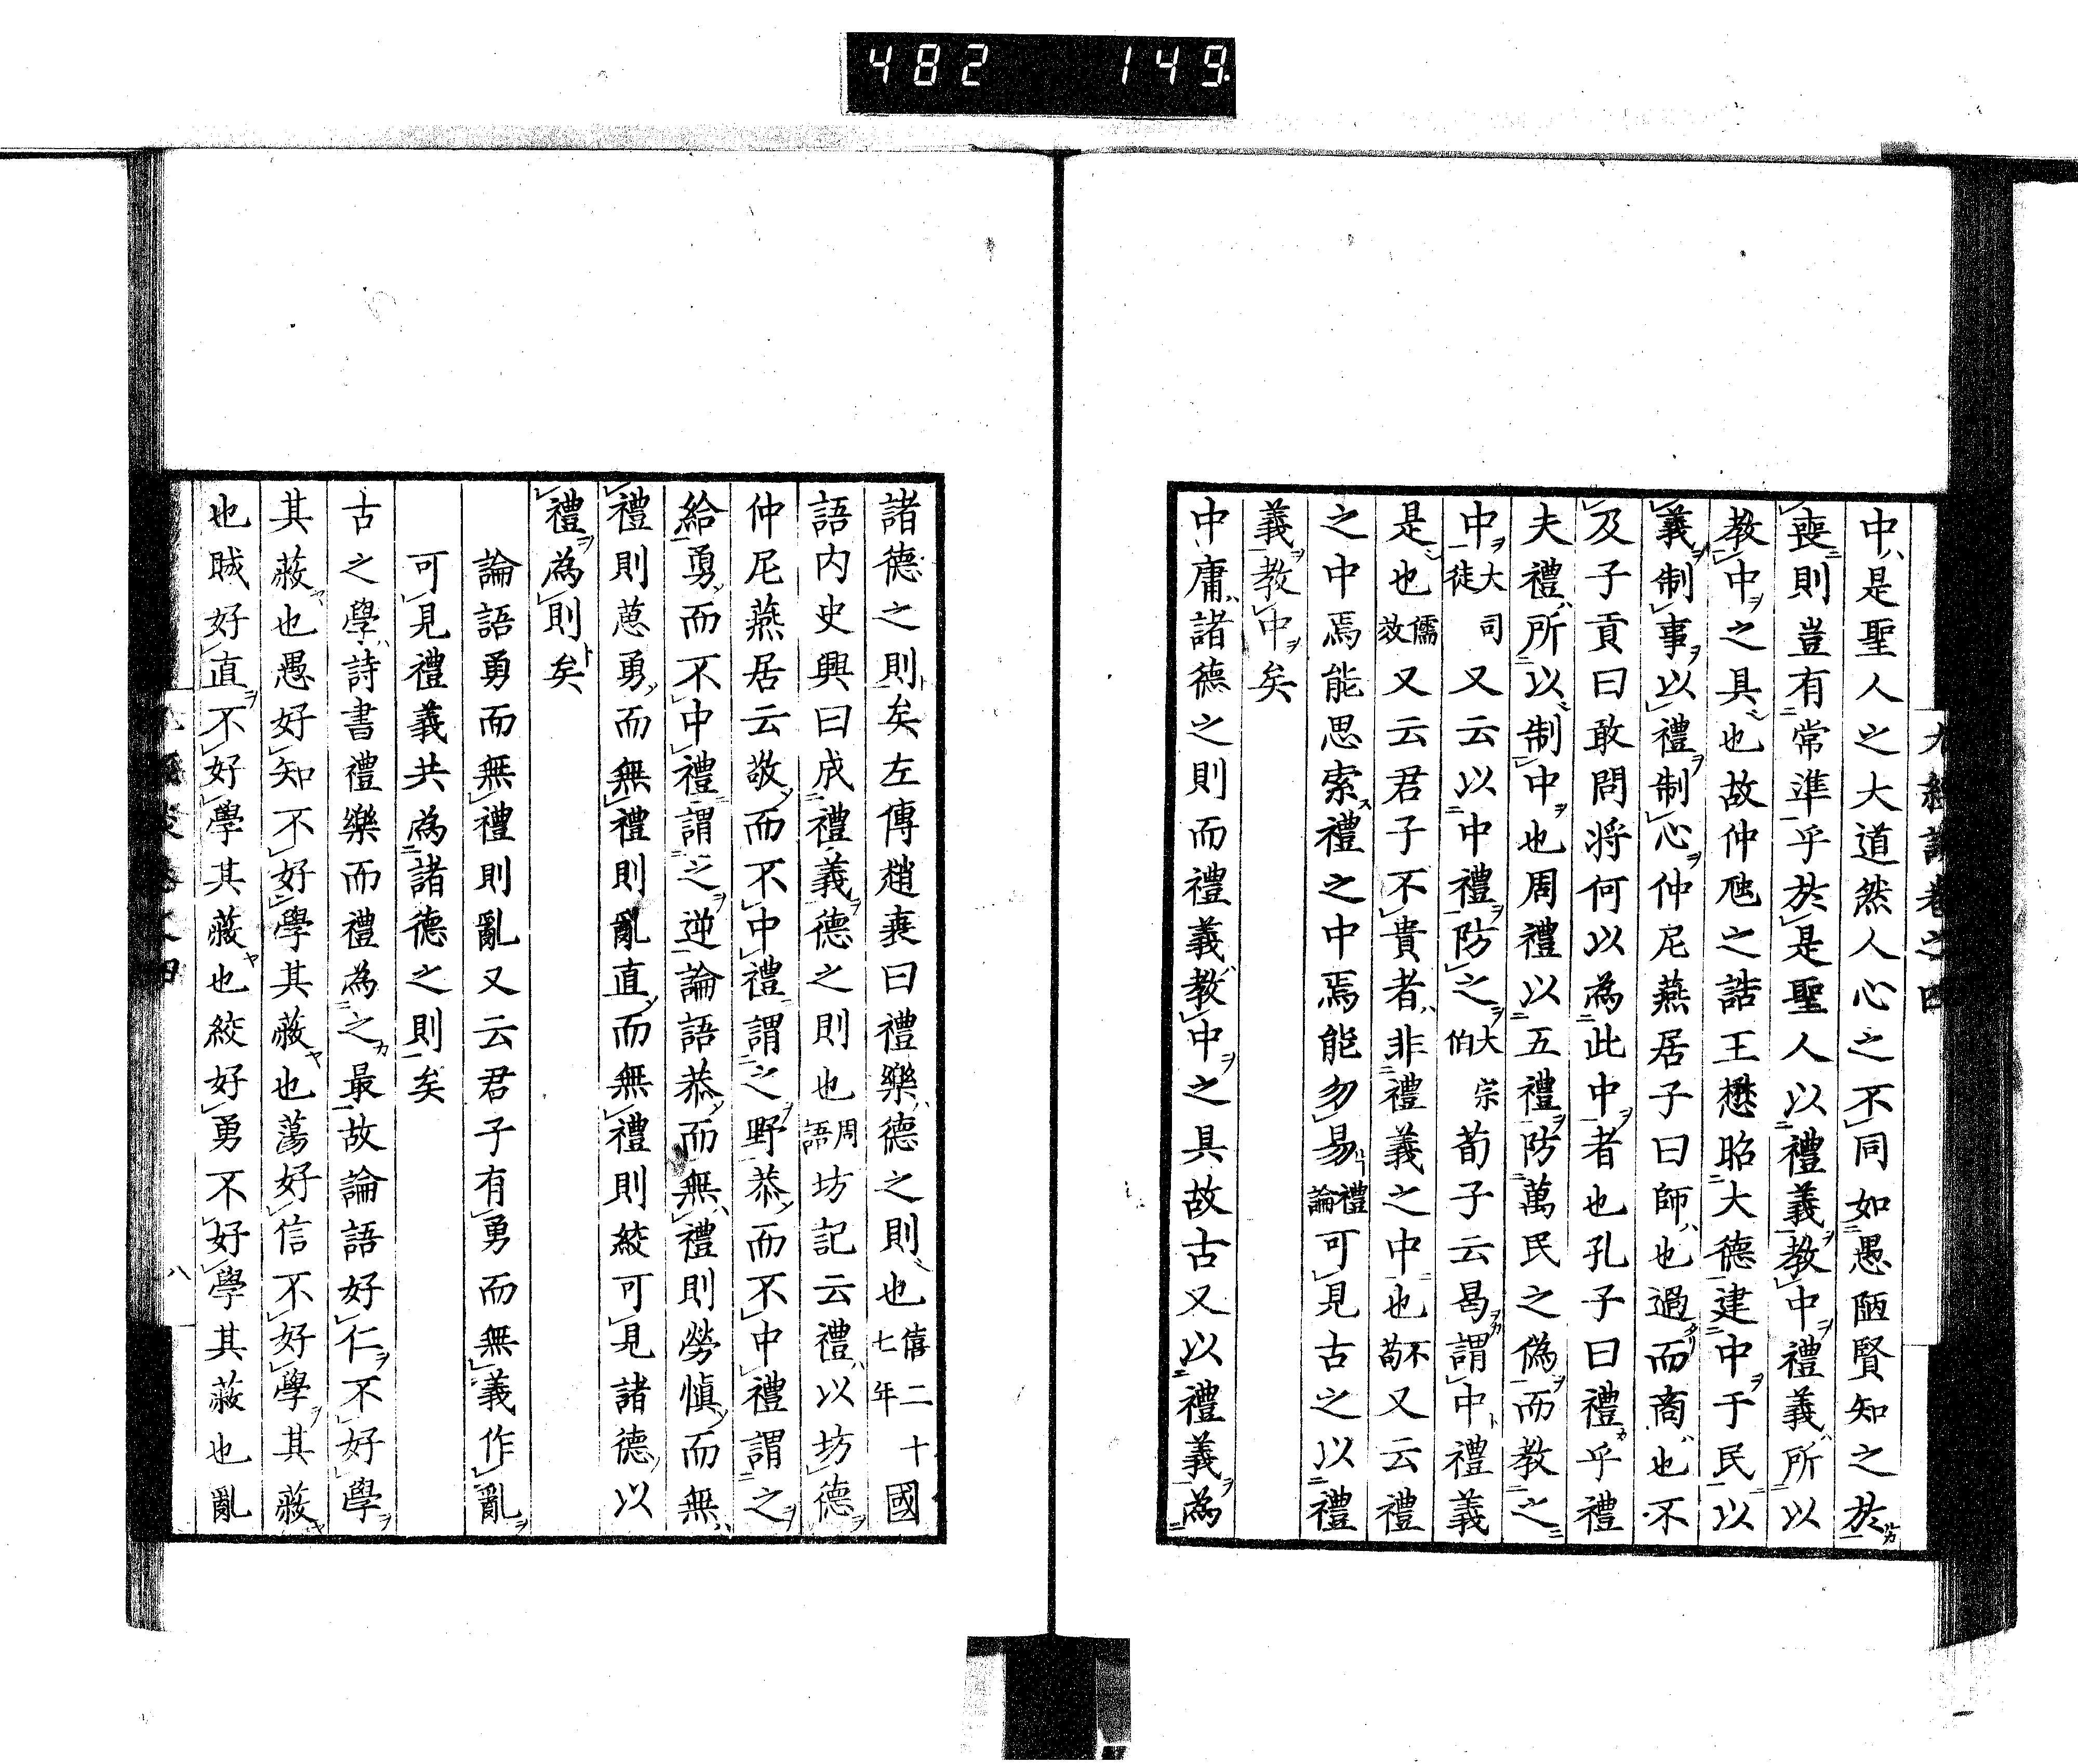 482 149
九經談卷之四
中是聖人之大道然人心之不同如愚陋賢知之於
喪則豈有常準乎於是聖人以禮義教中禮義所以
教中之具也故仲虺之誥王懋昭大德建中于民以
義制事以禮制心仲尼燕居子曰師也過而商也不
及子貢曰敢問將何以為此中者也孔子曰禮乎禮
夫禮所以制中也周禮以五禮防萬民之偽而教之
中大司徒又云以中禮防之大宗伯荀子云曷謂中禮義
是也儒效又云君子不貴者非禮義之中也不苟又云禮
之中焉能思索禮之中焉能勿易禮論可見古之以禮
義教中矣
中庸諸德之則而禮義教中之具故古又以禮義為
諸德之則矣左傳趙衰曰禮樂德之則也僖二十七年國
語內史興曰成禮義德之則也周語坊記云禮以坊德
仲尼燕居云敬而不中禮謂之野恭而不中禮謂之
給勇而不中禮謂之逆論語恭而無禮則勞慎而無
禮則葸勇而無禮則亂直而無禮則絞可見諸德以
禮為則矣
論語勇而無禮則亂又云君子有勇而無義作亂
可見禮義共為諸德之則矣
古之學詩書禮樂而禮為之最故論語好仁不好學
其蔽也愚好知不好學其蔽也蕩好信不好學其蔽
也賊好直不好學其蔽也絞好勇不好學其蔽也亂
八